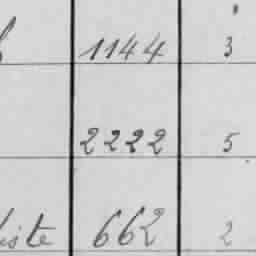 1144 3
2222 5
iste 662 2